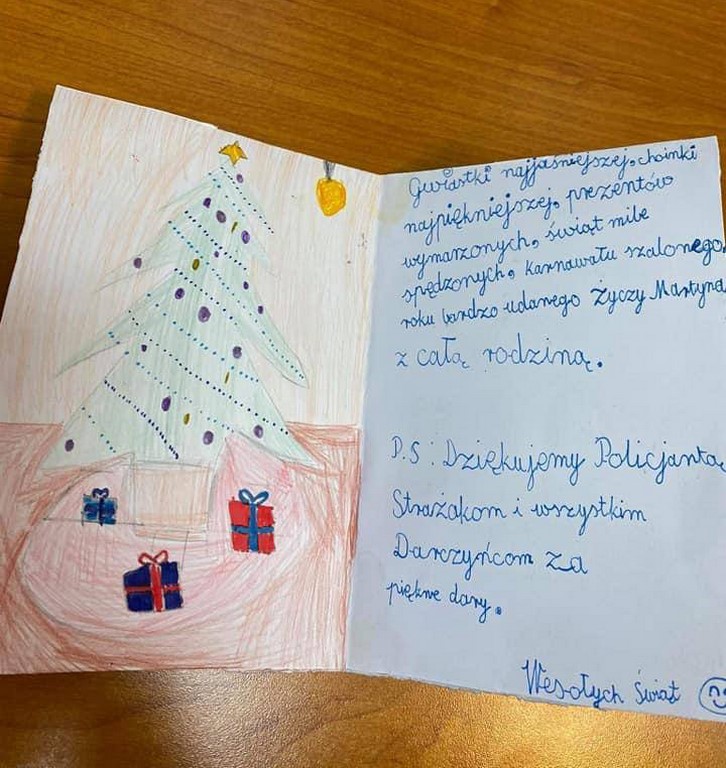 Gwiastki najjaśniejszej, choinki
najpiękniejszej, prezentów
wymarzonych, świąt mile
spędzonych, karnawału szalonego,
roku bardzo udanego Życzy Martyna
z całą rodziną.
P.S: Dziękujemy Policjantą,
Strażakom i wszystkim
Darczyńcom za
piękne dary.
Wesołych Świąt